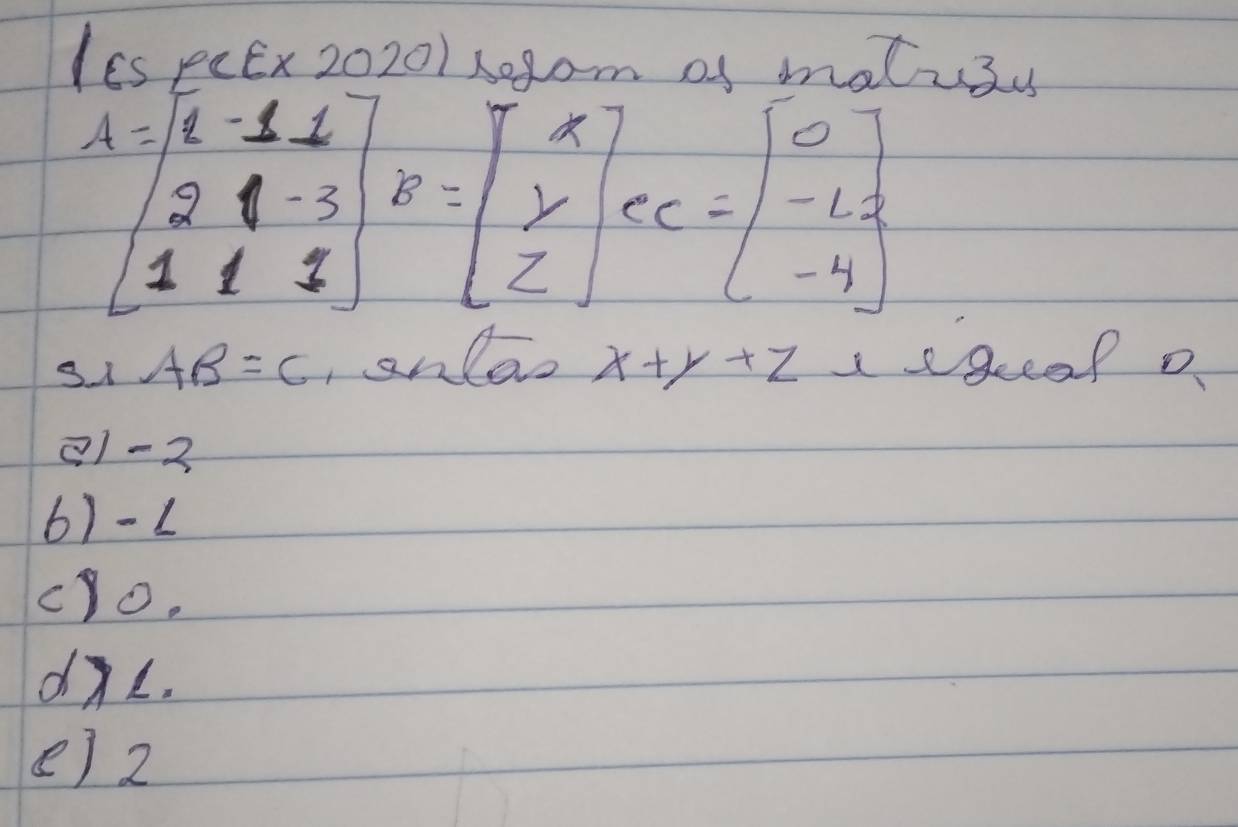 (ESPCEX 2020) sejam as matrizes
A = [1 -1 1] B = [x] e C = [0]
[2 1 -3] [y] [-12]
[1 1 1] [z] [-4]
se AB = C, então x+y+z é igual a
a) -2
b) -1
c) 0.
d) 1.
e) 2